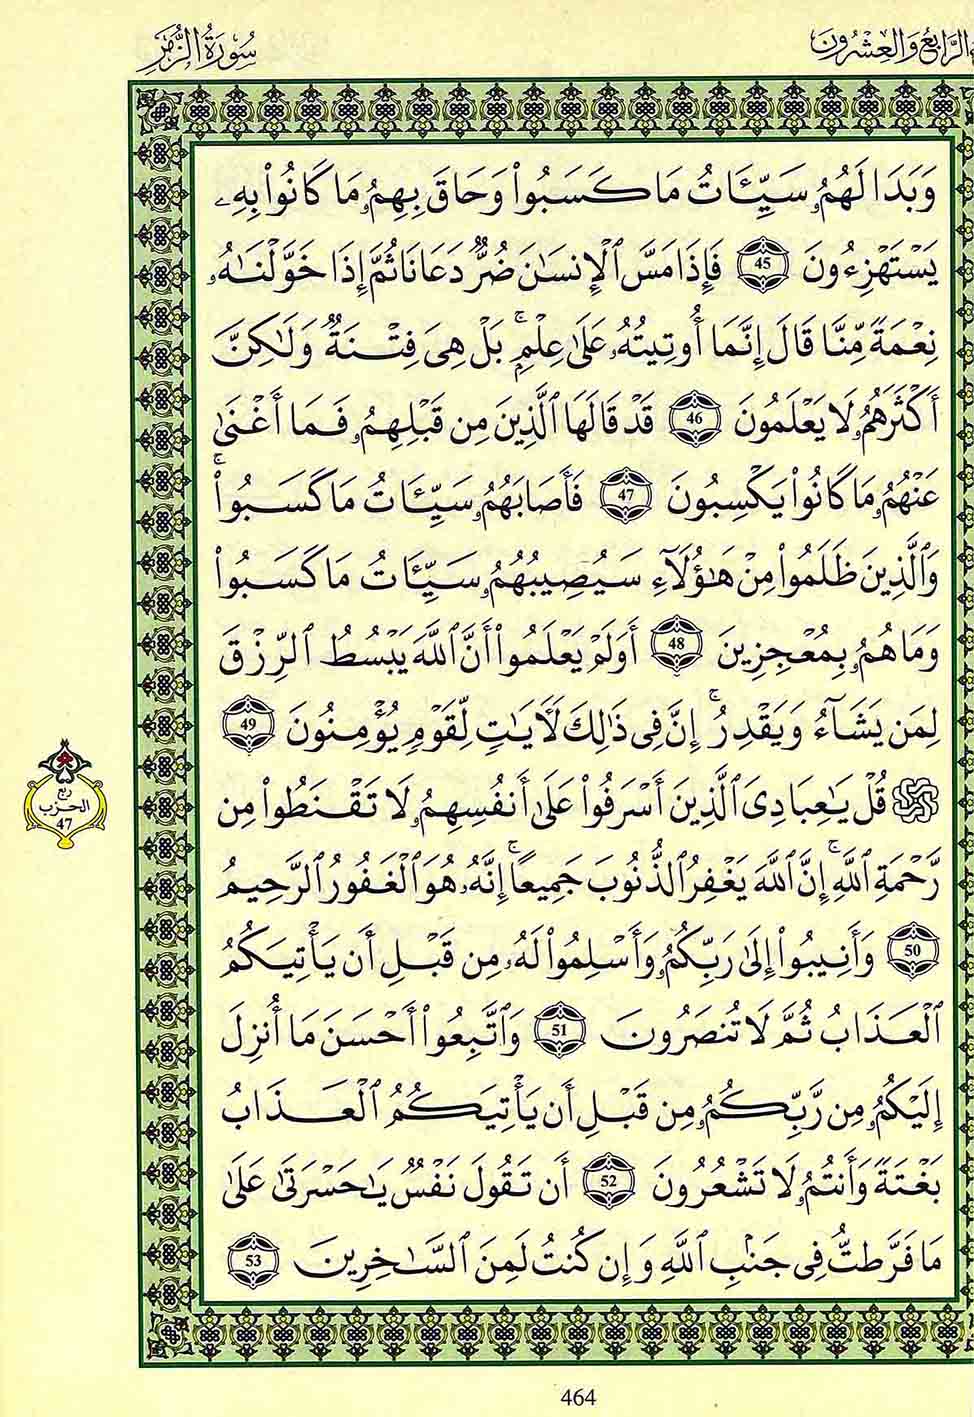 الرَّابِعُ وَالْعِشْرُونَ
سُورَةُ الزُّمَرِ
وَبَدَا لَهُمُۥ سَيِّـَٔاتُ مَا كَسَبُوا۟ وَحَاقَ بِهِمُۥ مَا كَانُوا۟ بِهِۦ
يَسْتَهْزِءُونَ 45 فَإِذَا مَسَّ ٱلْإِنسَـٰنَ ضُرٌّ دَعَانَا ثُمَّ إِذَا خَوَّلْنَـٰهُۥ
نِعْمَةً مِّنَّا قَالَ إِنَّمَا أُوتِيتُهُۥ عَلَىٰ عِلْمٍۚ بَلْ هِىَ فِتْنَةٌ وَلَـٰكِنَّ
أَكْثَرَهُمُۥ لَا يَعْلَمُونَ 46 قَدْ قَالَهَا ٱلَّذِينَ مِن قَبْلِهِمُۥ فَمَا أَغْنَىٰ
عَنْهُمُۥ مَا كَانُوا۟ يَكْسِبُونَ 47 فَأَصَابَهُمُۥ سَيِّـَٔاتُ مَا كَسَبُوا۟ۚ
وَٱلَّذِينَ ظَلَمُوا۟ مِنْ هَـٰٓؤُلَآءِ سَيُصِيبُهُمُۥ سَيِّـَٔاتُ مَا كَسَبُوا۟
وَمَا هُمُۥ بِمُعْجِزِينَ 48 أَوَلَمْ يَعْلَمُوا۟ أَنَّ ٱللَّهَ يَبْسُطُ ٱلرِّزْقَ
لِمَن يَشَآءُ وَيَقْدِرُۚ إِنَّ فِى ذَٰلِكَ لَـَٔايَـٰتٍ لِّقَوْمٍ يُؤْمِنُونَ 49
قُلْ يَـٰعِبَادِىَ ٱلَّذِينَ أَسْرَفُوا۟ عَلَىٰ أَنفُسِهِمُۥ لَا تَقْنَطُوا۟ مِن
رَّحْمَةِ ٱللَّهِۚ إِنَّ ٱللَّهَ يَغْفِرُ ٱلذُّنُوبَ جَمِيعًاۚ إِنَّهُۥ هُوَ ٱلْغَفُورُ ٱلرَّحِيمُ
50 وَأَنِيبُوا۟ إِلَىٰ رَبِّكُمُۥ وَأَسْلِمُوا۟ لَهُۥ مِن قَبْلِ أَن يَأْتِيَكُمُ
ٱلْعَذَابُ ثُمَّ لَا تُنصَرُونَ 51 وَٱتَّبِعُوا۟ أَحْسَنَ مَا أُنزِلَ
إِلَيْكُمُۥ مِن رَّبِّكُمُۥ مِن قَبْلِ أَن يَأْتِيَكُمُ ٱلْعَذَابُ
بَغْتَةً وَأَنتُمُۥ لَا تَشْعُرُونَ 52 أَن تَقُولَ نَفْسٌ يَـٰحَسْرَتَىٰ عَلَىٰ
مَا فَرَّطتُّ فِى جَنۢبِ ٱللَّهِ وَإِن كُنتُ لَمِنَ ٱلسَّـٰخِرِينَ 53
ربع
الحزب
47
464